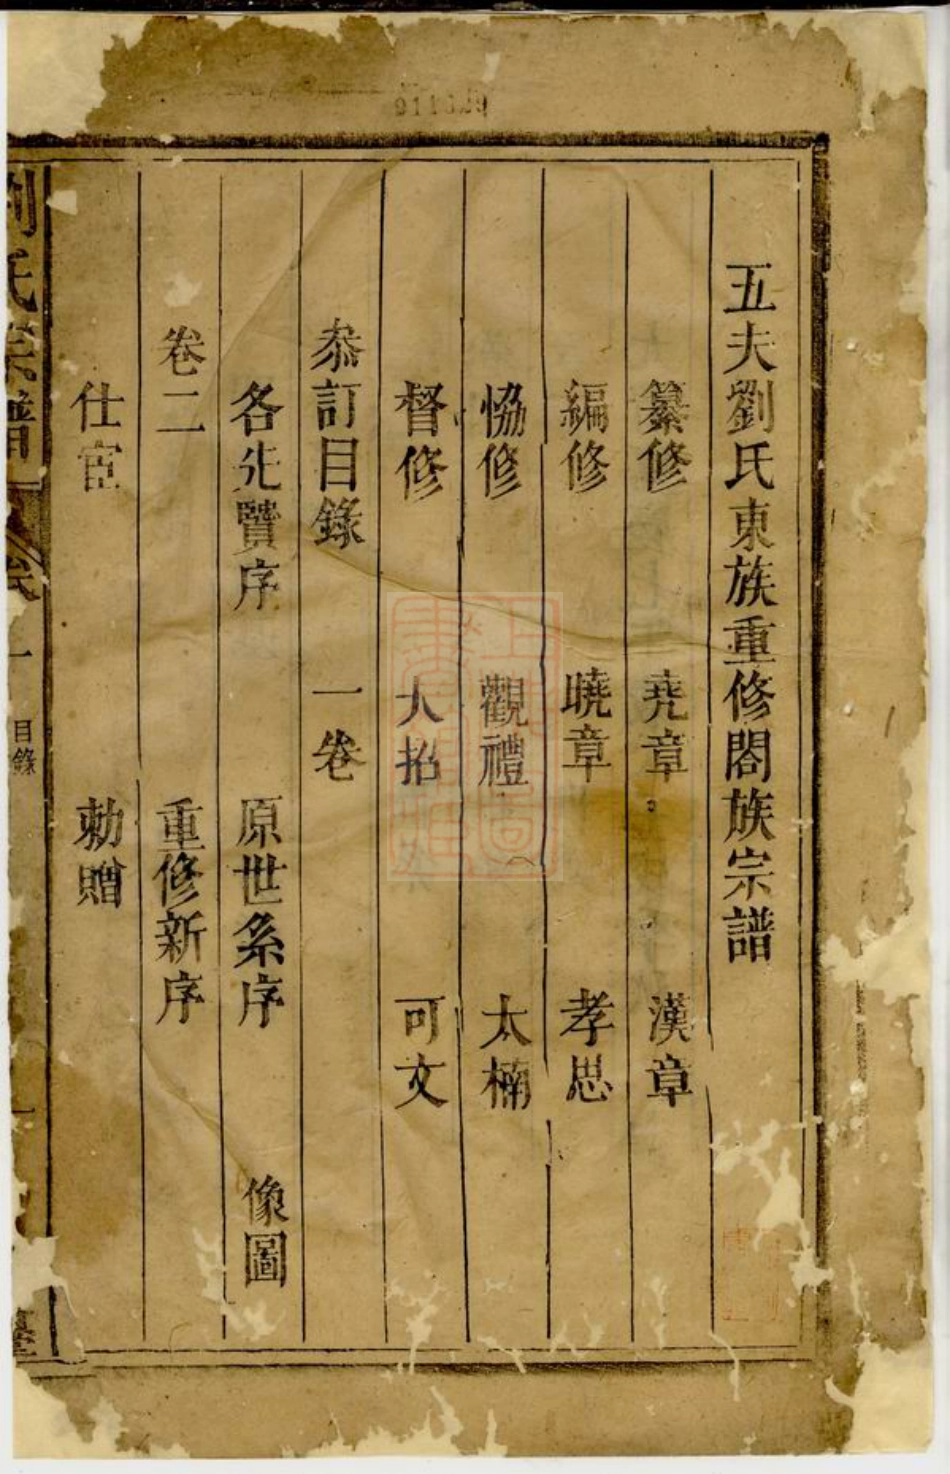 五夫劉氏東族重修閤族宗譜
纂修 堯章 漢章
編修 曉章 孝思
恊修 觀禮 太楠
督修 大招 可文
叅訂目錄 一卷
各先賢序 原世系序 像圖
卷二 重修新序
仕宦 勅贈
劉氏宗譜 卷一 目錄 一